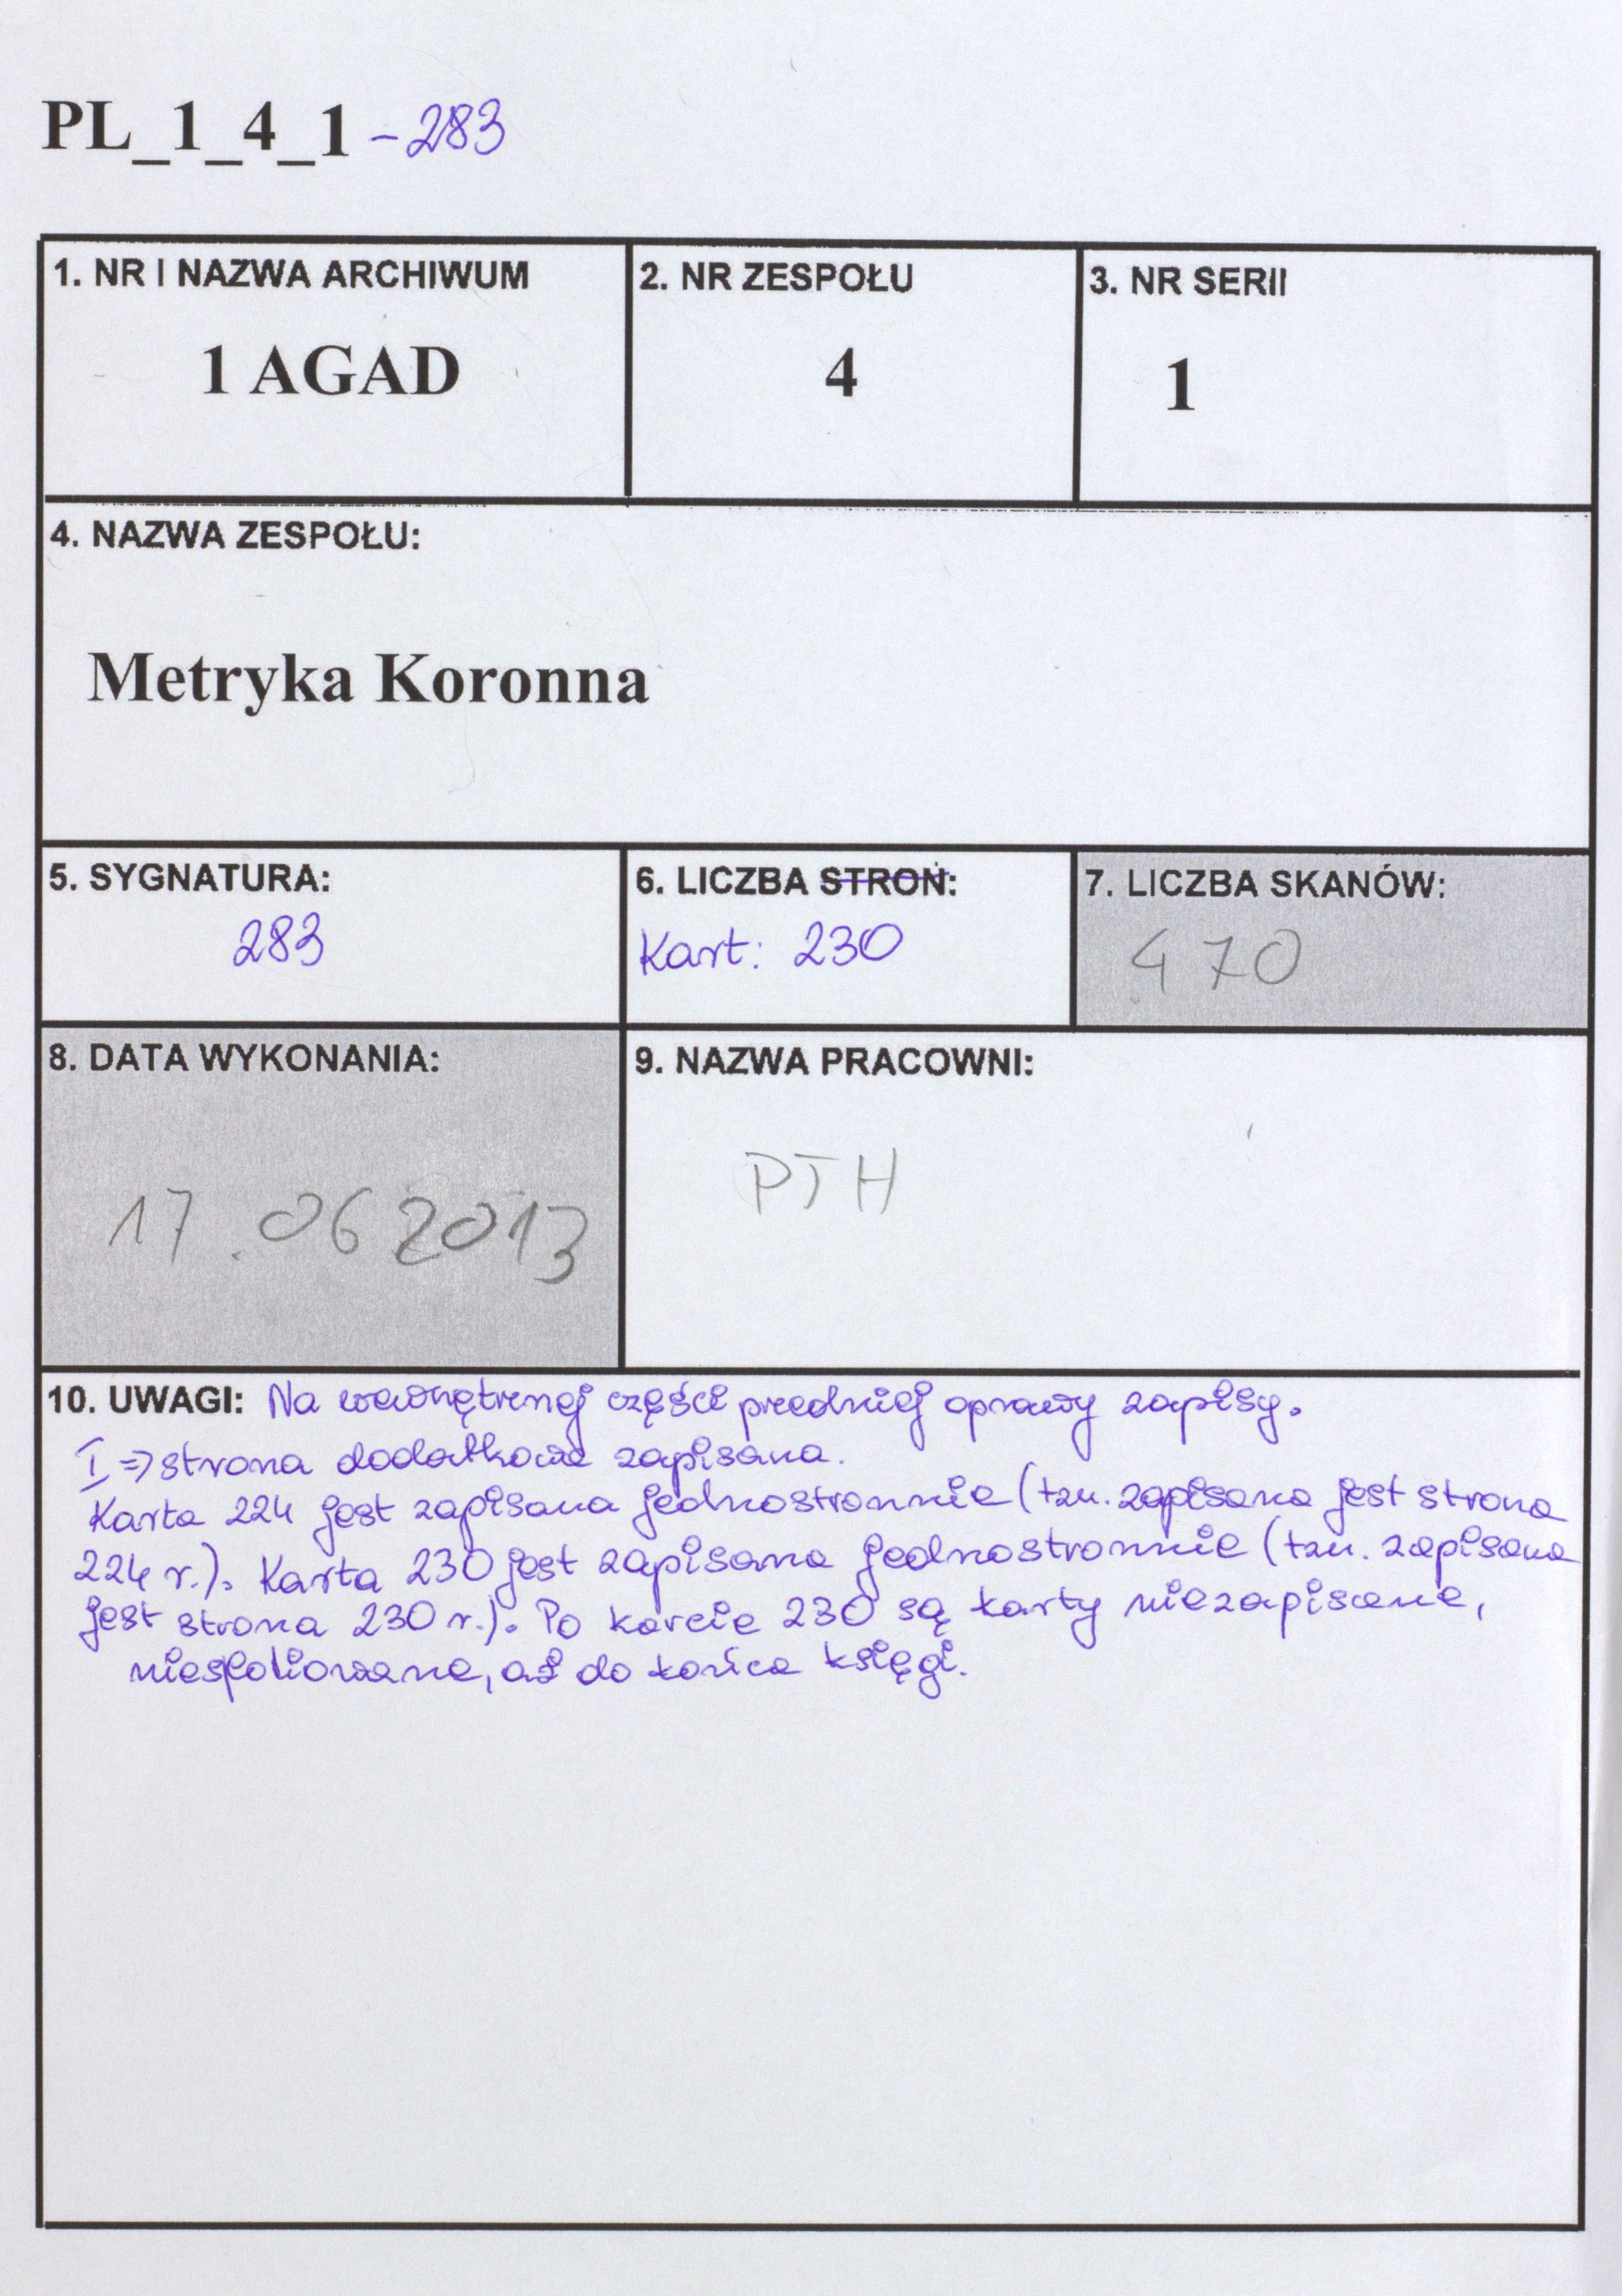 PL_1_4_1 - 283
1. NR I NAZWA ARCHIWUM
1 AGAD
2. NR ZESPOŁU
4
3. NR SERII
1
4. NAZWA ZESPOŁU:
Metryka Koronna
5. SYGNATURA:
283
6. LICZBA STRON:
Kart: 230
7. LICZBA SKANÓW:
470
8. DATA WYKONANIA:
17.06 2013
9. NAZWA PRACOWNI:
PTH
10. UWAGI: Na wewnętrznej części przedniej oprawy zapisy.
I => strona dodatkowa zapisana.
Karta 224 jest zapisana jednostronnie (tzn. zapisana jest strona
224 r.). Karta 230 jest zapisana jednostronnie (tzn. zapisana
jest strona 230 r.). Po karcie 230 są karty niezapisane,
niesfoliowane, aż do końca księgi.